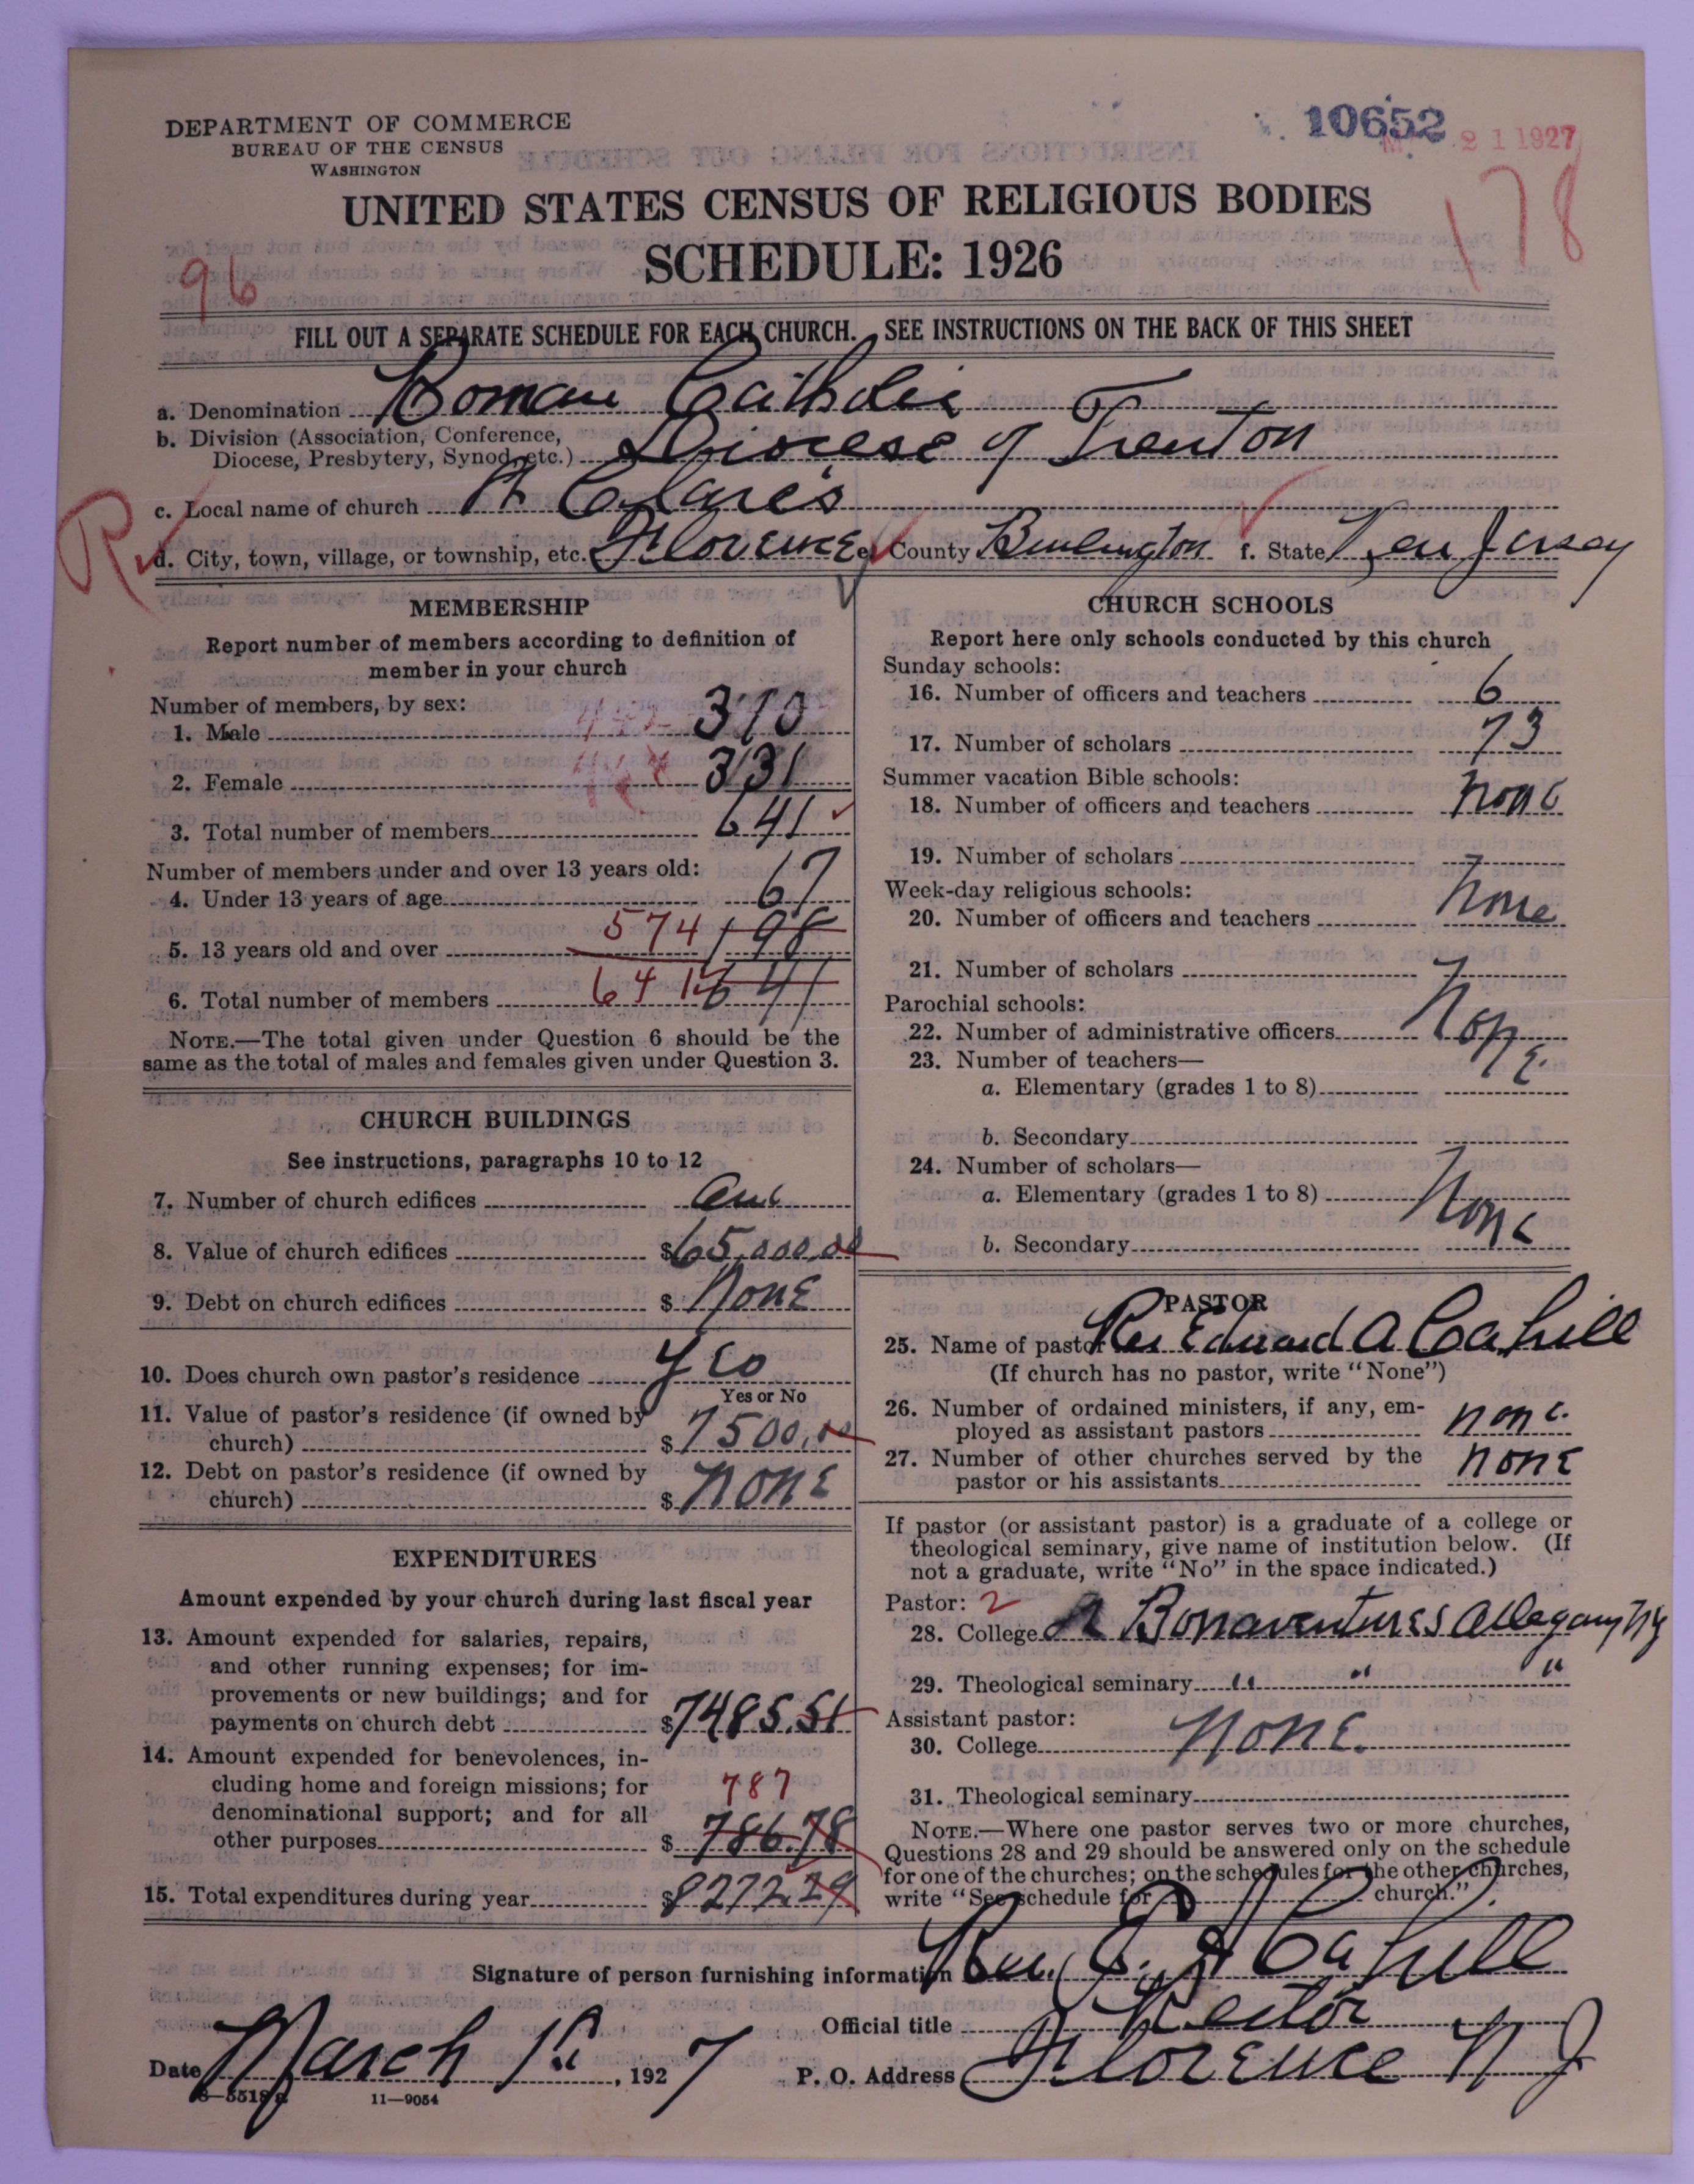 DEPARTMENT OF COMMERCE
BUREAU OF THE CENSUS
WASHINGTON
10652
21 1927
178
UNITED STATES CENSUS OF RELIGIOUS BODIES
SCHEDULE: 1926
96
FILL OUT A SEPARATE SCHEDULE FOR EACH CHURCH. SEE INSTRUCTIONS ON THE BACK OF THIS SHEET
a. Denomination Roman Catholic
b. Division (Association, Conference,
Diocese, Presbytery, Synod, etc.) Diocese of Trenton
c. Local name of church St Clare's
R
d. City, town, village, or township, etc. Florence e. County Burlington f. State New Jersey
MEMBERSHIP
Report number of members according to definition of
member in your church
Number of members, by sex:
1. Male 310
2. Female 331
3. Total number of members 641
Number of members under and over 13 years old:
4. Under 13 years of age 67
5. 13 years old and over 574 198
6. Total number of members 641 641
NOTE.—The total given under Question 6 should be the
same as the total of males and females given under Question 3.
CHURCH BUILDINGS
See instructions, paragraphs 10 to 12
7. Number of church edifices One
8. Value of church edifices $65,000.00
9. Debt on church edifices $ None
10. Does church own pastor's residence Yes
Yes or No
11. Value of pastor's residence (if owned by
church) $7500.00
12. Debt on pastor's residence (if owned by
church) $ None
EXPENDITURES
Amount expended by your church during last fiscal year
13. Amount expended for salaries, repairs,
and other running expenses; for im-
provements or new buildings; and for
payments on church debt $7485.51
14. Amount expended for benevolences, in-
cluding home and foreign missions; for 787
denominational support; and for all
other purposes $ 786.78
15. Total expenditures during year $8272.29
CHURCH SCHOOLS
Report here only schools conducted by this church
Sunday schools:
16. Number of officers and teachers 6
17. Number of scholars 73
Summer vacation Bible schools:
18. Number of officers and teachers None
19. Number of scholars
Week-day religious schools:
20. Number of officers and teachers None
21. Number of scholars
Parochial schools:
22. Number of administrative officers None
23. Number of teachers—
a. Elementary (grades 1 to 8)
b. Secondary
24. Number of scholars—
a. Elementary (grades 1 to 8) None
b. Secondary
PASTOR
25. Name of pastor Rev Edward A Cahill
(If church has no pastor, write "None")
26. Number of ordained ministers, if any, em-
ployed as assistant pastors none
27. Number of other churches served by the
pastor or his assistants none
If pastor (or assistant pastor) is a graduate of a college or
theological seminary, give name of institution below. (If
not a graduate, write "No" in the space indicated.)
Pastor: 2
28. College St Bonaventures Allegany NY
29. Theological seminary " " "
Assistant pastor:
30. College None
31. Theological seminary
NOTE.—Where one pastor serves two or more churches,
Questions 28 and 29 should be answered only on the schedule
for one of the churches; on the schedules for the other churches,
write "See schedule for church."
Signature of person furnishing information Rev. E. A Cahill
Official title Rector
Date March 1st, 1927 P. O. Address Florence N J
11—9054